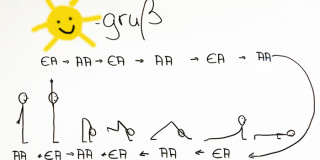 -gruß
EA → AA → EA → AA → EA → AA
AA ← EA → AA ← EA ← AA ← EA